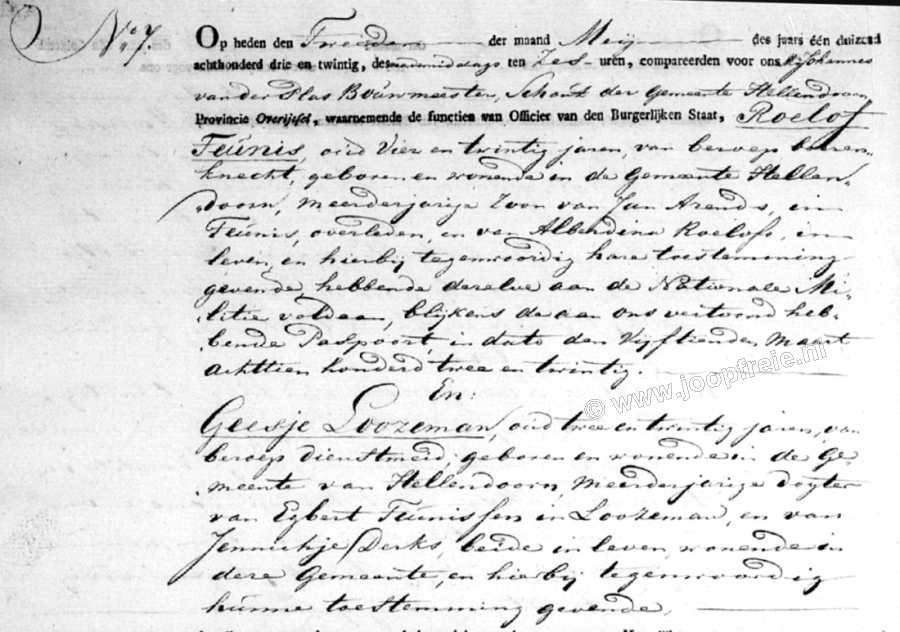 N.º 7.
Op heden den Tweeden der maand Meij des jaars één duizend
achthonderd drie en twintig, des namiddags ten Zes uren, compareerden voor ons Johannes
van der Plas Bouwmeester, Schout der Gemeente Hellendoorn
Provincie Overijsel, waarnemende de functien van Officier van den Burgerlijken Staat, Roelof
Teunis, oud Vier en twintig jaren, van beroep boeren-
knecht, geboren en wonende in de Gemeente Hellen-
doorn, meerderjarige Zoon van Jan Arends, in
Teunis, overleden, en van Alberdina Roelofs, in
leven, en hierbij tegenwoordig hare toestemming
gevende, hebbende dezelve aan de Nationale Mi-
litie voldaan, blijkens de aan ons vertoond heb-
bende Paspoort, in dato den Vijftienden Maart
achttien honderd twee en twintig.
En:
Geesje Loozeman, oud twee en twintig jaren, van
beroep dienstmeid, geboren en wonende in de Ge-
meente van Hellendoorn, meerderjarige dogter
van Egbert Teunissen in Loozeman, en van
Jennichje Derks, beide in leven, wonende in
deze Gemeente, en hierbij tegenwoordig
hunne toestemming gevende.
© www.joopfreie.nl